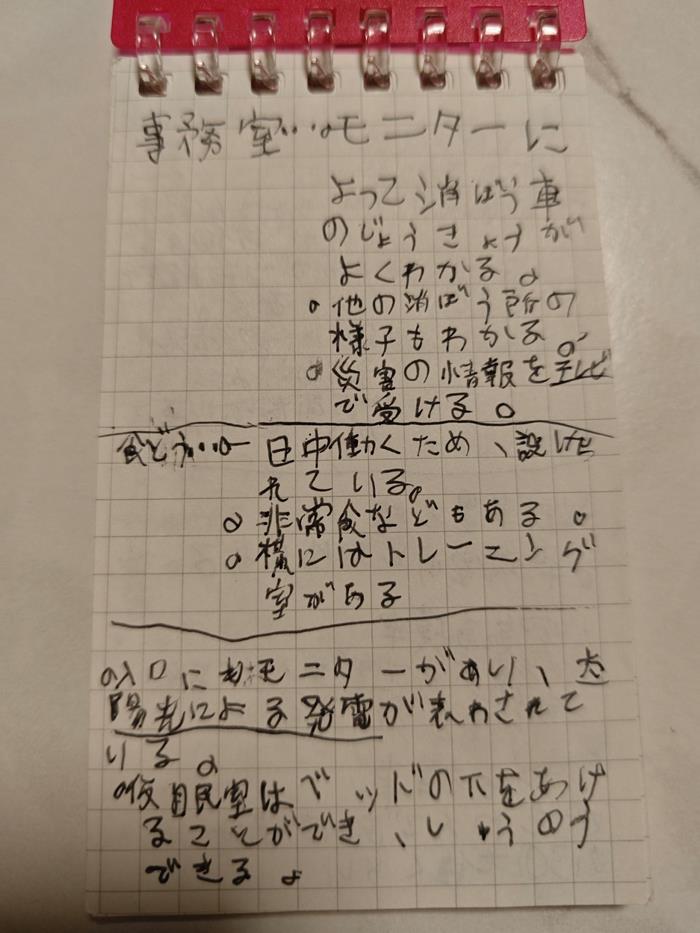 事務室…。モニターに
よって消ぼう車
のじょうきょうが
よくわかる。
。他の消ぼう所の
様子もわかる。
。災害の情報をテレビ
で受ける。
食どう… 日中働くため、設けら
れている。
。非常食などもある。
。横にはトレーニング
室がある
。入口にもモニターがあり、太
陽光による発電が表わされて
いる。
。仮眠室はベッドの下をあけ
ることができ、しゅうのう
できる。